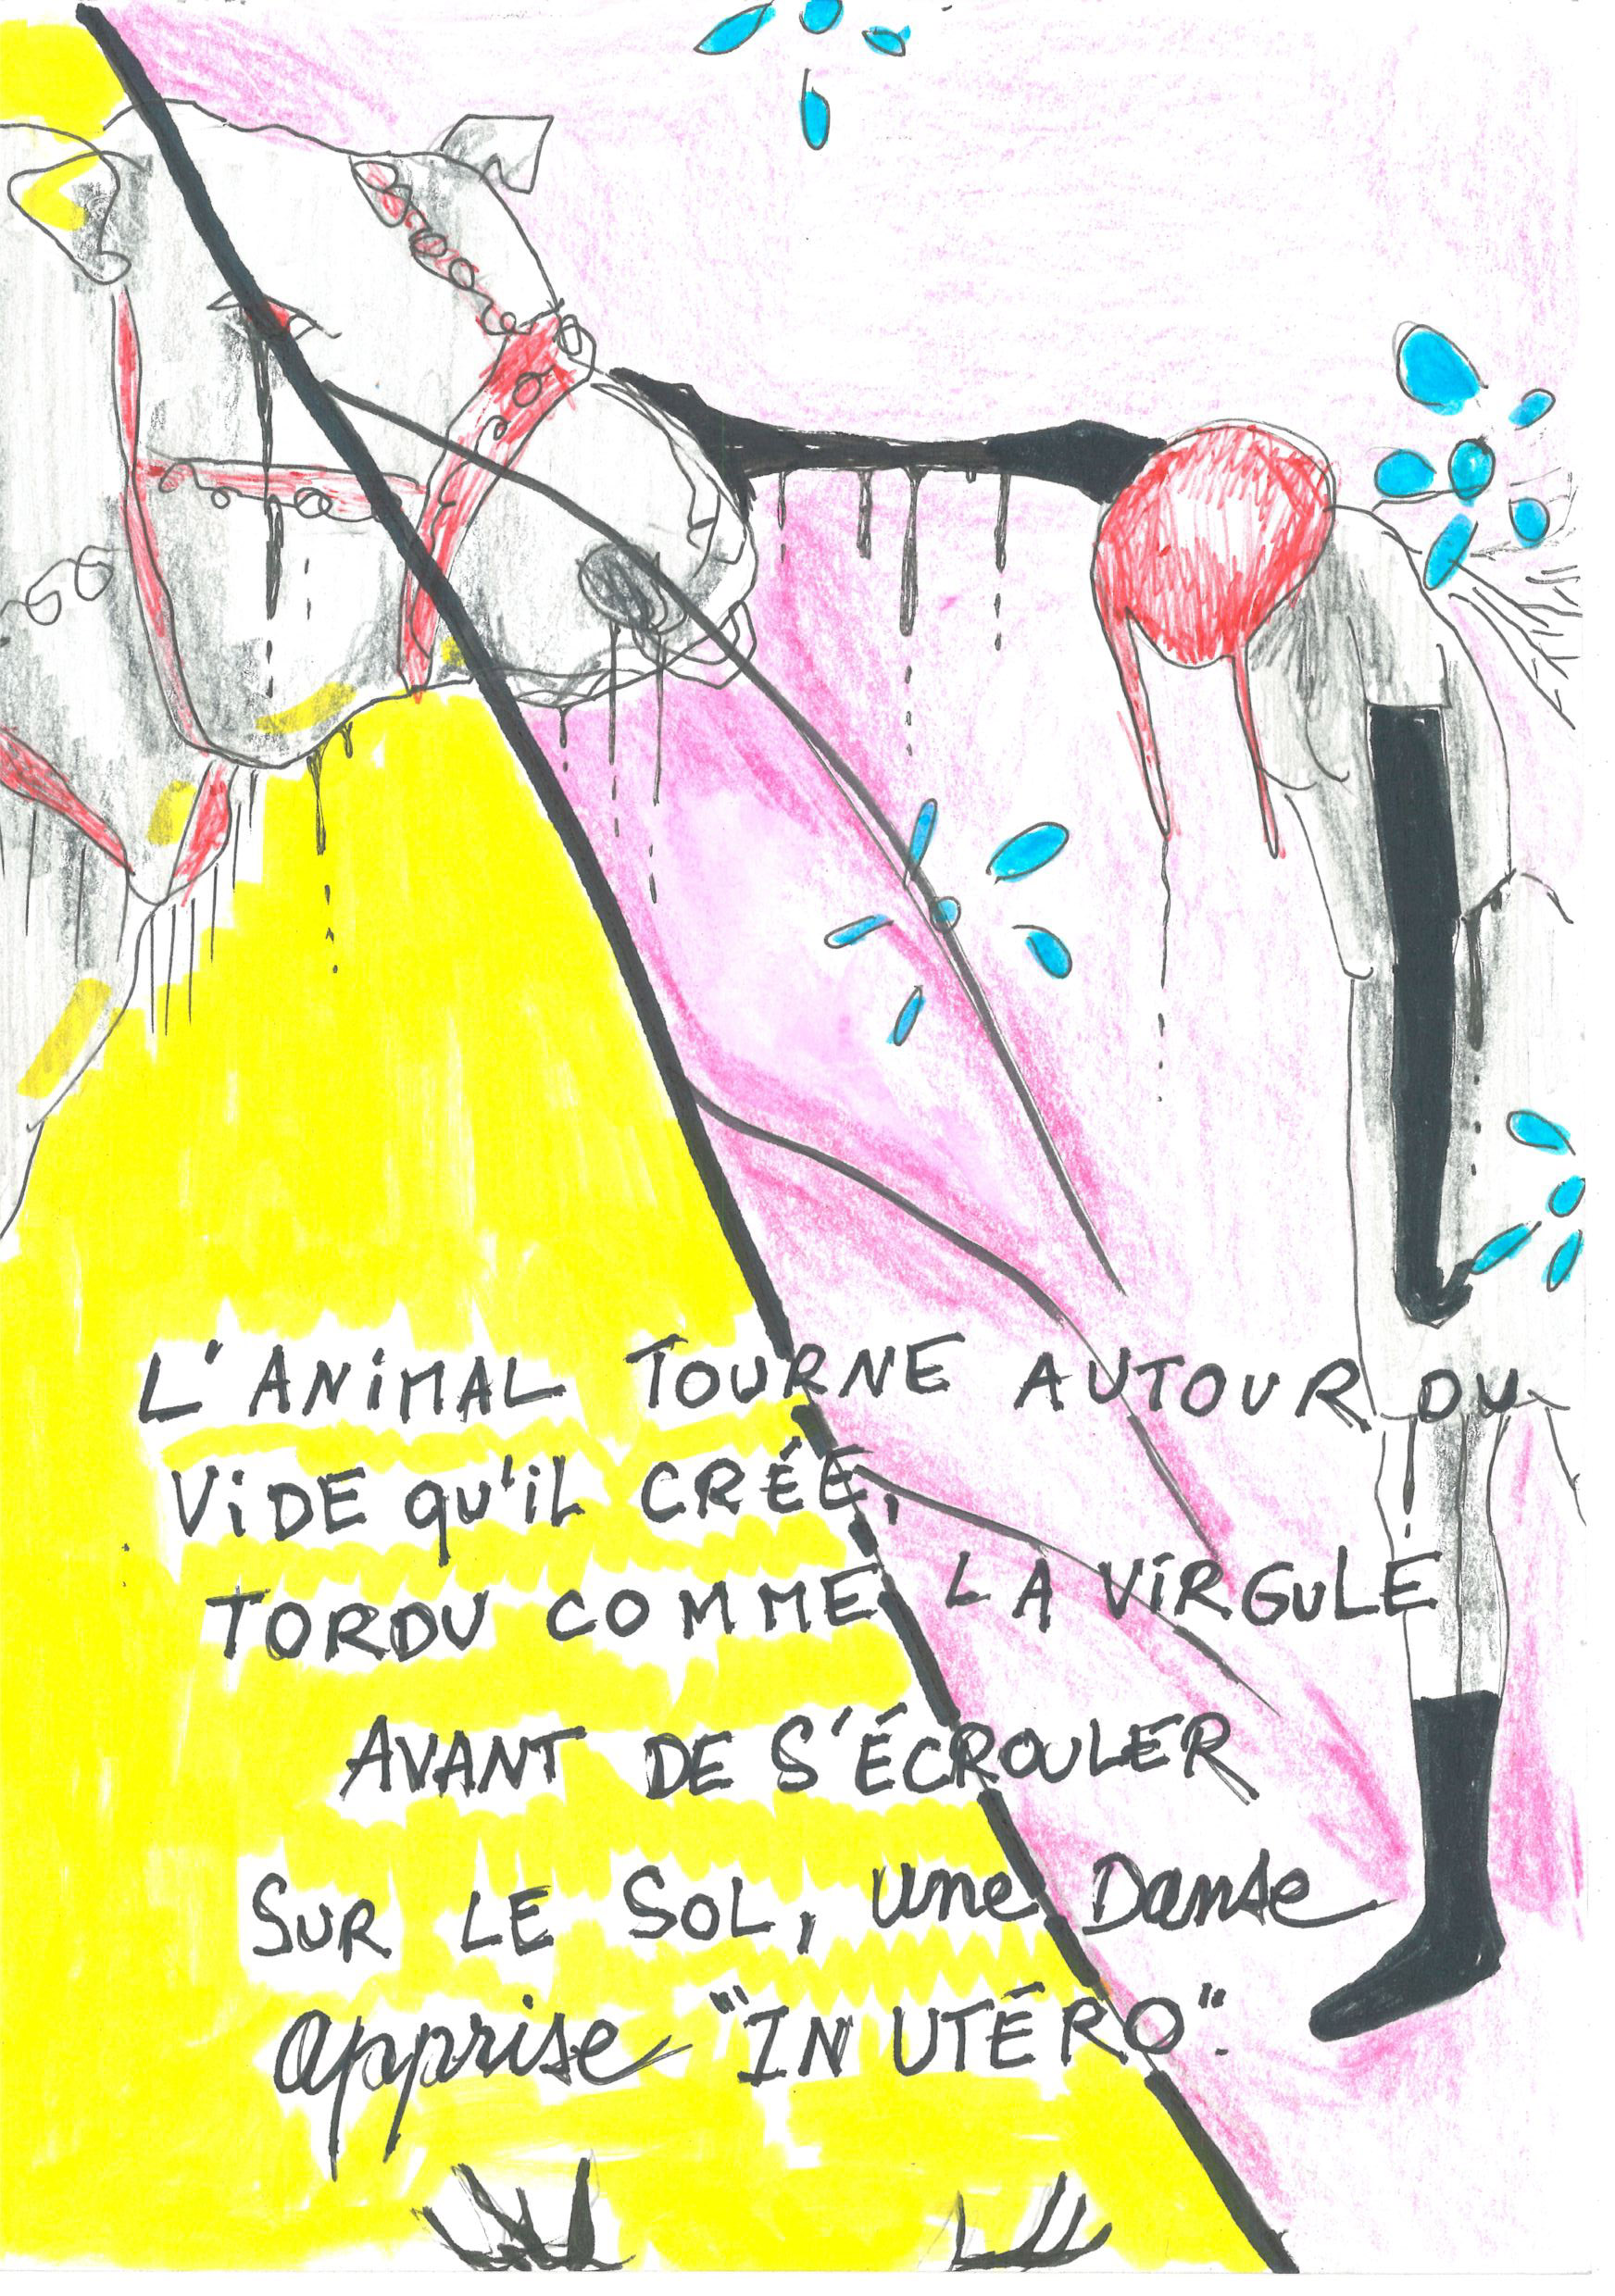 L'ANiMAL TOURNE AUTOUR DU
ViDE qu'iL CRÉE,
TORDU COMME LA ViRGULE
AVANT DE S'ÉCROULER
SUR LE SOL, une Danse
apprise "IN UTÉRO".